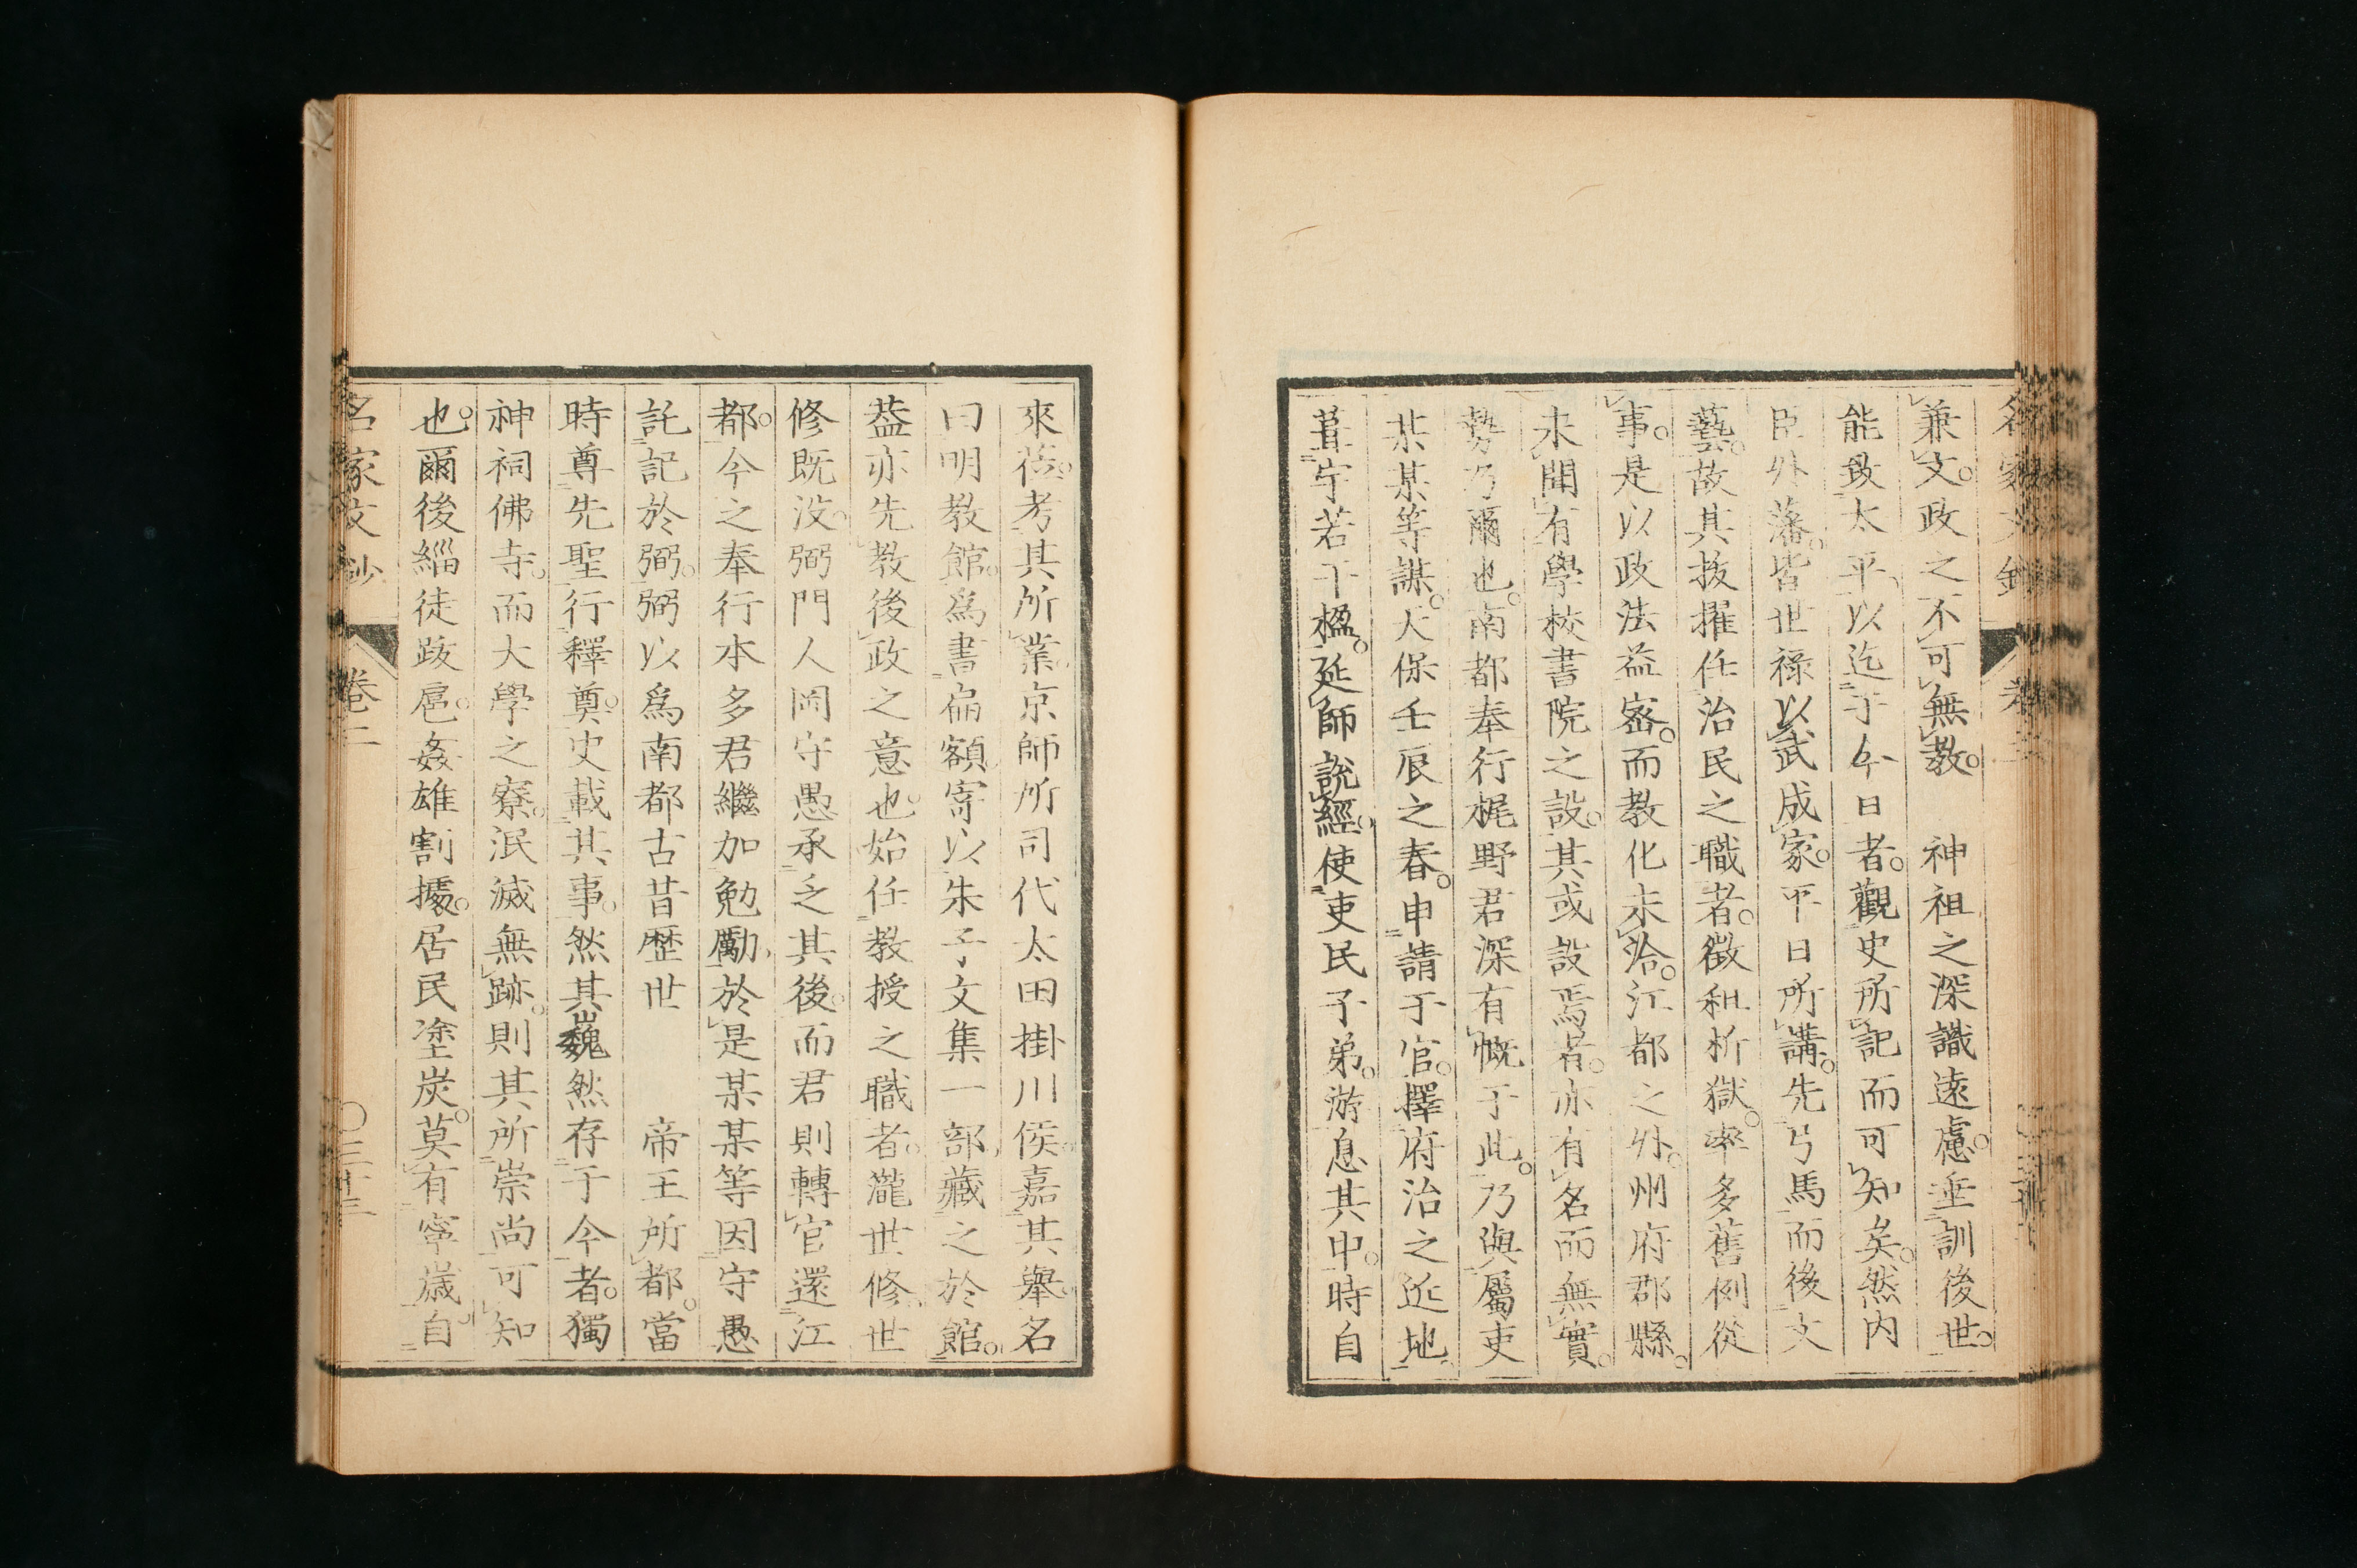 兼文。政之不可無教。　神祖之深識遠慮。垂訓後世。
能致太平、以迄于今日者。觀史所記而可知矣。然内
臣外藩。皆世祿以武成家。平日所講。先弓馬而後文
藝。故其拔擢任治民之職者。徵租析獄。率多舊例從
事。是以政法益密。而教化未洽。江都之外。州府郡縣。
未聞有學校書院之設。其或設焉者。亦有名而無實。
勢乃爾也。南都奉行梶野君深有慨于此。乃與屬吏
某某等謀。天保壬辰之春。申請于官。擇府治之近地。
葺宇若干楹。延師說經。使吏民子弟。游息其中。時自
來莅。考其所業。京師所司代太田掛川侯。嘉其擧。名
曰明教館。爲書扁額。寄以朱子文集一部。藏之於館。
葢亦先教後政之意也。始任教授之職者。瀧世修。世
修既没。弼門人岡守愚承乏其後。而君則轉官還江
都。今之奉行本多君繼加勉勵。於是某某等因守愚
託記於弼。弼以爲南都古昔歴世　帝王所都。當
時尊先聖。行釋奠。史載其事。然其巍然存于今者。獨
神祠佛寺。而大學之寮。泯滅無跡。則其所崇尚可知
也。爾後緇徒跋扈。姦雄割據。居民塗炭。莫有寧歲。自
名家文鈔　卷二　〇三十三